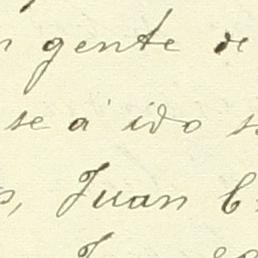 gente de
se á ido
Juan